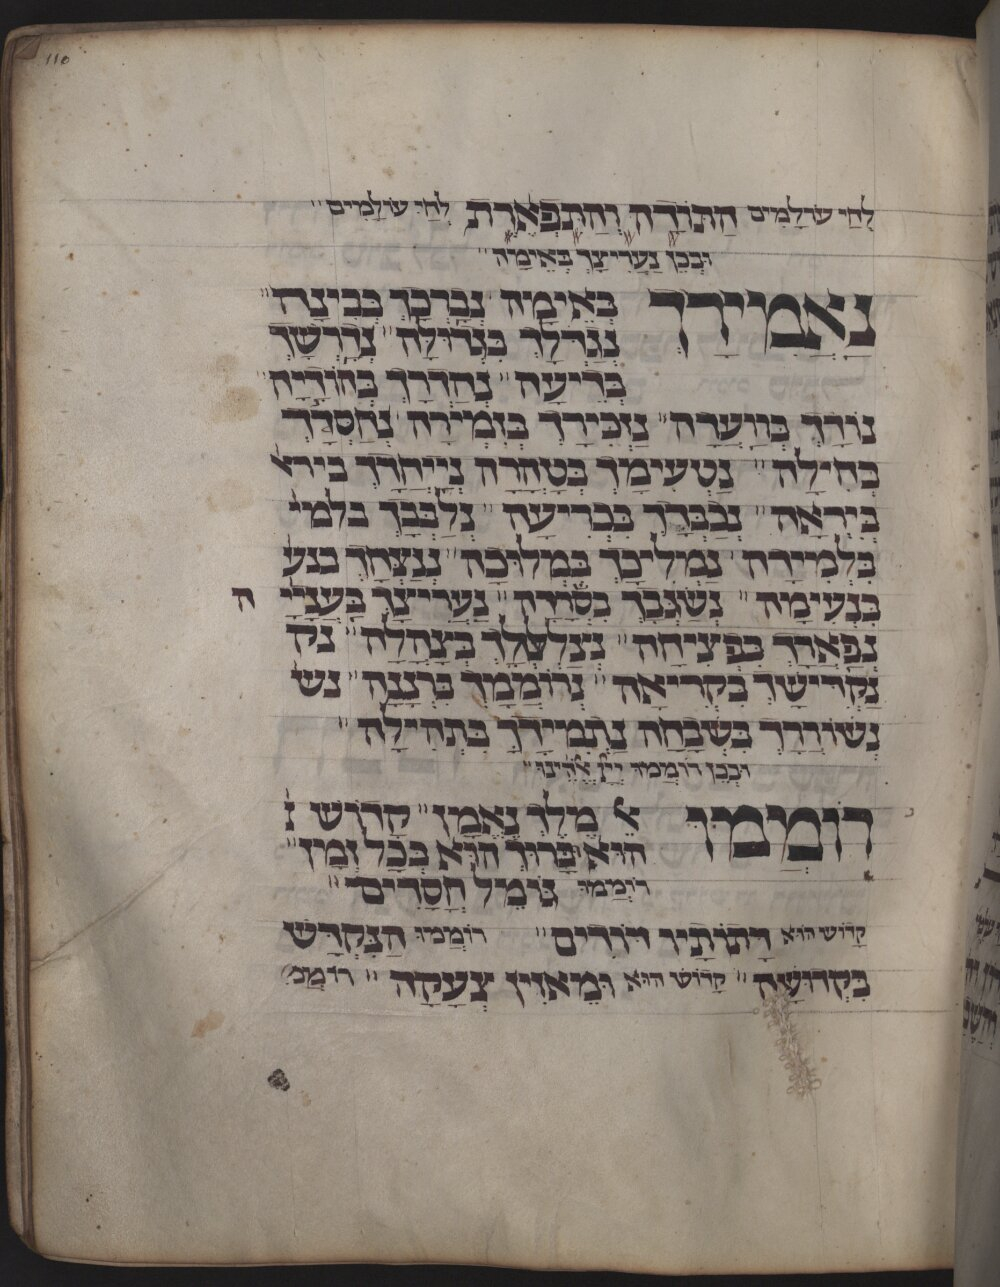 110
לְחַי עוֹלָמִים הַתּוֹרָה וְהַתִּפְאֶרֶת לְחַי עוֹלָמִים
וּבְכֵן נַעֲרִיצָךְ בְּאֵימָה
נַאֲמִירָךְ בְּאֵימָה נְבָרְכָךְ בְּבִינָה
נְגַדְּלָךְ בִּגְדוּלָּה נִדְרָשָׁךְ
בְּדֵיעָה נְהַדְּרָךְ בְּהוֹדָיָה
נוֹדָךְ בְּוַוְעָדָה נַזְכִּירָךְ בְּזִמְרָה נְחַסְּנָךְ
בְּחִילָה נַטְעִימָךְ בְּטָהֳרָה נְיַיחֲדָךְ ביר
בְּיִרְאָה נְכַבְּדָךְ בִּכְרִיעָה נְלַבְּבָךְ בלמי
בִּלְמִידָה נַמְלִיכָךְ בִּמְלוּכָה נְנַצְּחָךְ בנע
בִּנְעִימָה נְשַׂגְּבָךְ בְּסוֹדָה נַעֲרִיצָךְ בַּעֲנָיָי ה
נְפָאֲרָךְ בִּפְצִיחָה נְצַלְצְלָךְ בְּצָהֳלָה נק
נַקְדִּישָׁךְ בִּקְרִיאָה נְרוֹמְמָךְ בִּרְנָנָה נש
נְשׁוֹרְרָךְ בִּשְׁבָחָה נַתְמִידָךְ בִּתְהִילָּה
וּבְכֵן רוֹמְמוּ יְיָ אֱלֹהֵינוּ
רוֹמְמוּ אֵ מֶלֶךְ נֶאֱמָן קָדוֹשׁ
הוּא בָּרוּךְ הוּא בְּכָל זְמַן
רוֹמְמוּ גּוֹמֵל חֲסָדִים
קָדוֹשׁ הוּא דָּתוֹתָיו רוֹמְמוּ הַנִּקְדָּשׁ
בִּקְדוּשָּׁה קָדוֹשׁ הוּא וּמַאֲזִין צְעָקָה רוממ